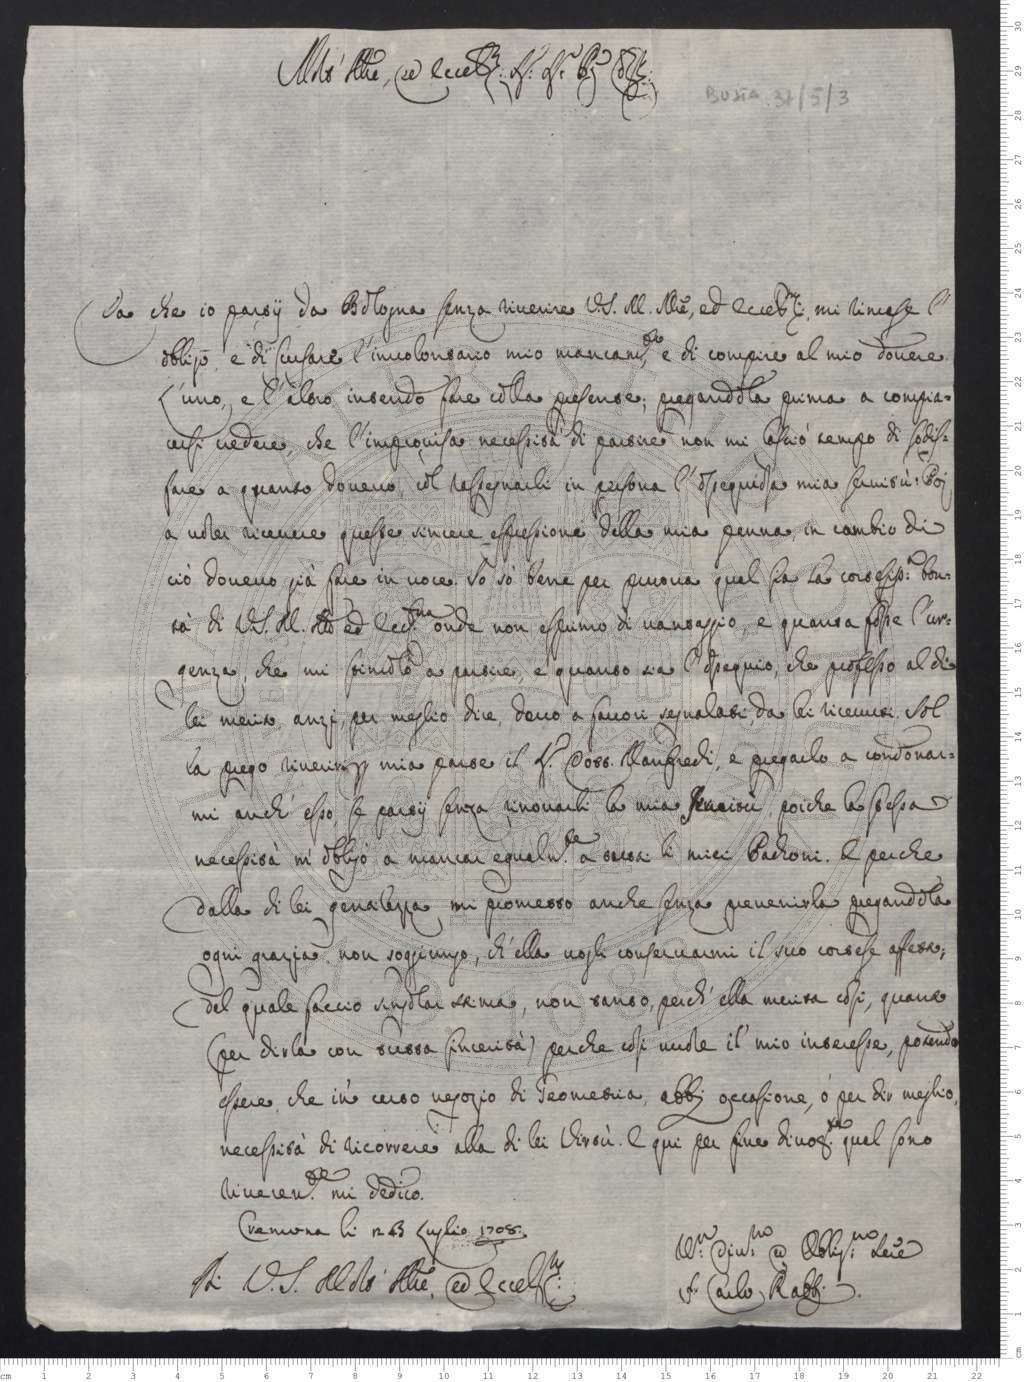 Molto Ill.re, ed Eccell.mo Sig.r Sig.r P.ron Col.mo
BUSTA 37/5/3
Da che io partij da Bologna senza riverire V.S. M. Ill.re, ed Eccell.ma, mi rimase l'
obbligo e di scusare l'involontario mio mancam.to, e di compire al mio dovere.
L'uno, e l'altro intendo fare colla presente; pregandola prima a compia-
cersi credere, che l'improvisa necessità di partire non mi lasciò tempo di sodis-
fare a quanto dovevo, col rassegnarli in persona l'ossequiosa mia servitù: Poi
a voler ricevere queste sincere espressione della mia penna, in cambio di
ciò dovevo già fare in voce. Io sò bene per pruova qual sia la cortesiss.a bon-
tà di V.S. M. Ill.re ed Ecc.ma onde non espumo di vantaggio, e quanta fosse l'ur-
genza, che mi stimolò a partire, e quanto sia l'ossequio, che professo al di
lei merito, anzi, per meglio dire, devo a favori segnalati, da lei ricevuti. Sol
la prego riverir p mia parte il S.r Dott. Manfredi, e pregarlo a condonar-
mi anch'esso, se partij senza rinovarli la mia servitù, poiche la stessa
necessità m'obbligò a mancar egualm.te a tutti li miei Padroni. E perche
dalla di lei gentilezza mi prometto anche senza prevenirla pregandola
ogni grazia; non soggiungo, ch'ella vogli conservarmi il suo cortese affetto;
del quale faccio singolar stima, non tanto, perch'ella merita così, quanto
(per dirla con tutta sincerità) perche così vuole il mio interesse, potendo
essere, che in certo negozio di Geometria, abbj occasione, ò per dir meglio,
necessità di ricorrere alla di lei Virtù. E qui per fine divoti.te qual sono
riveren.te mi dedico.
Cremona li 23 Luglio 1708.
Di V.S. Molto Ill.re, ed Eccell.ma
Um.o Div.mo ed Obblig.mo Ser.e
f. Carlo Rabbi.